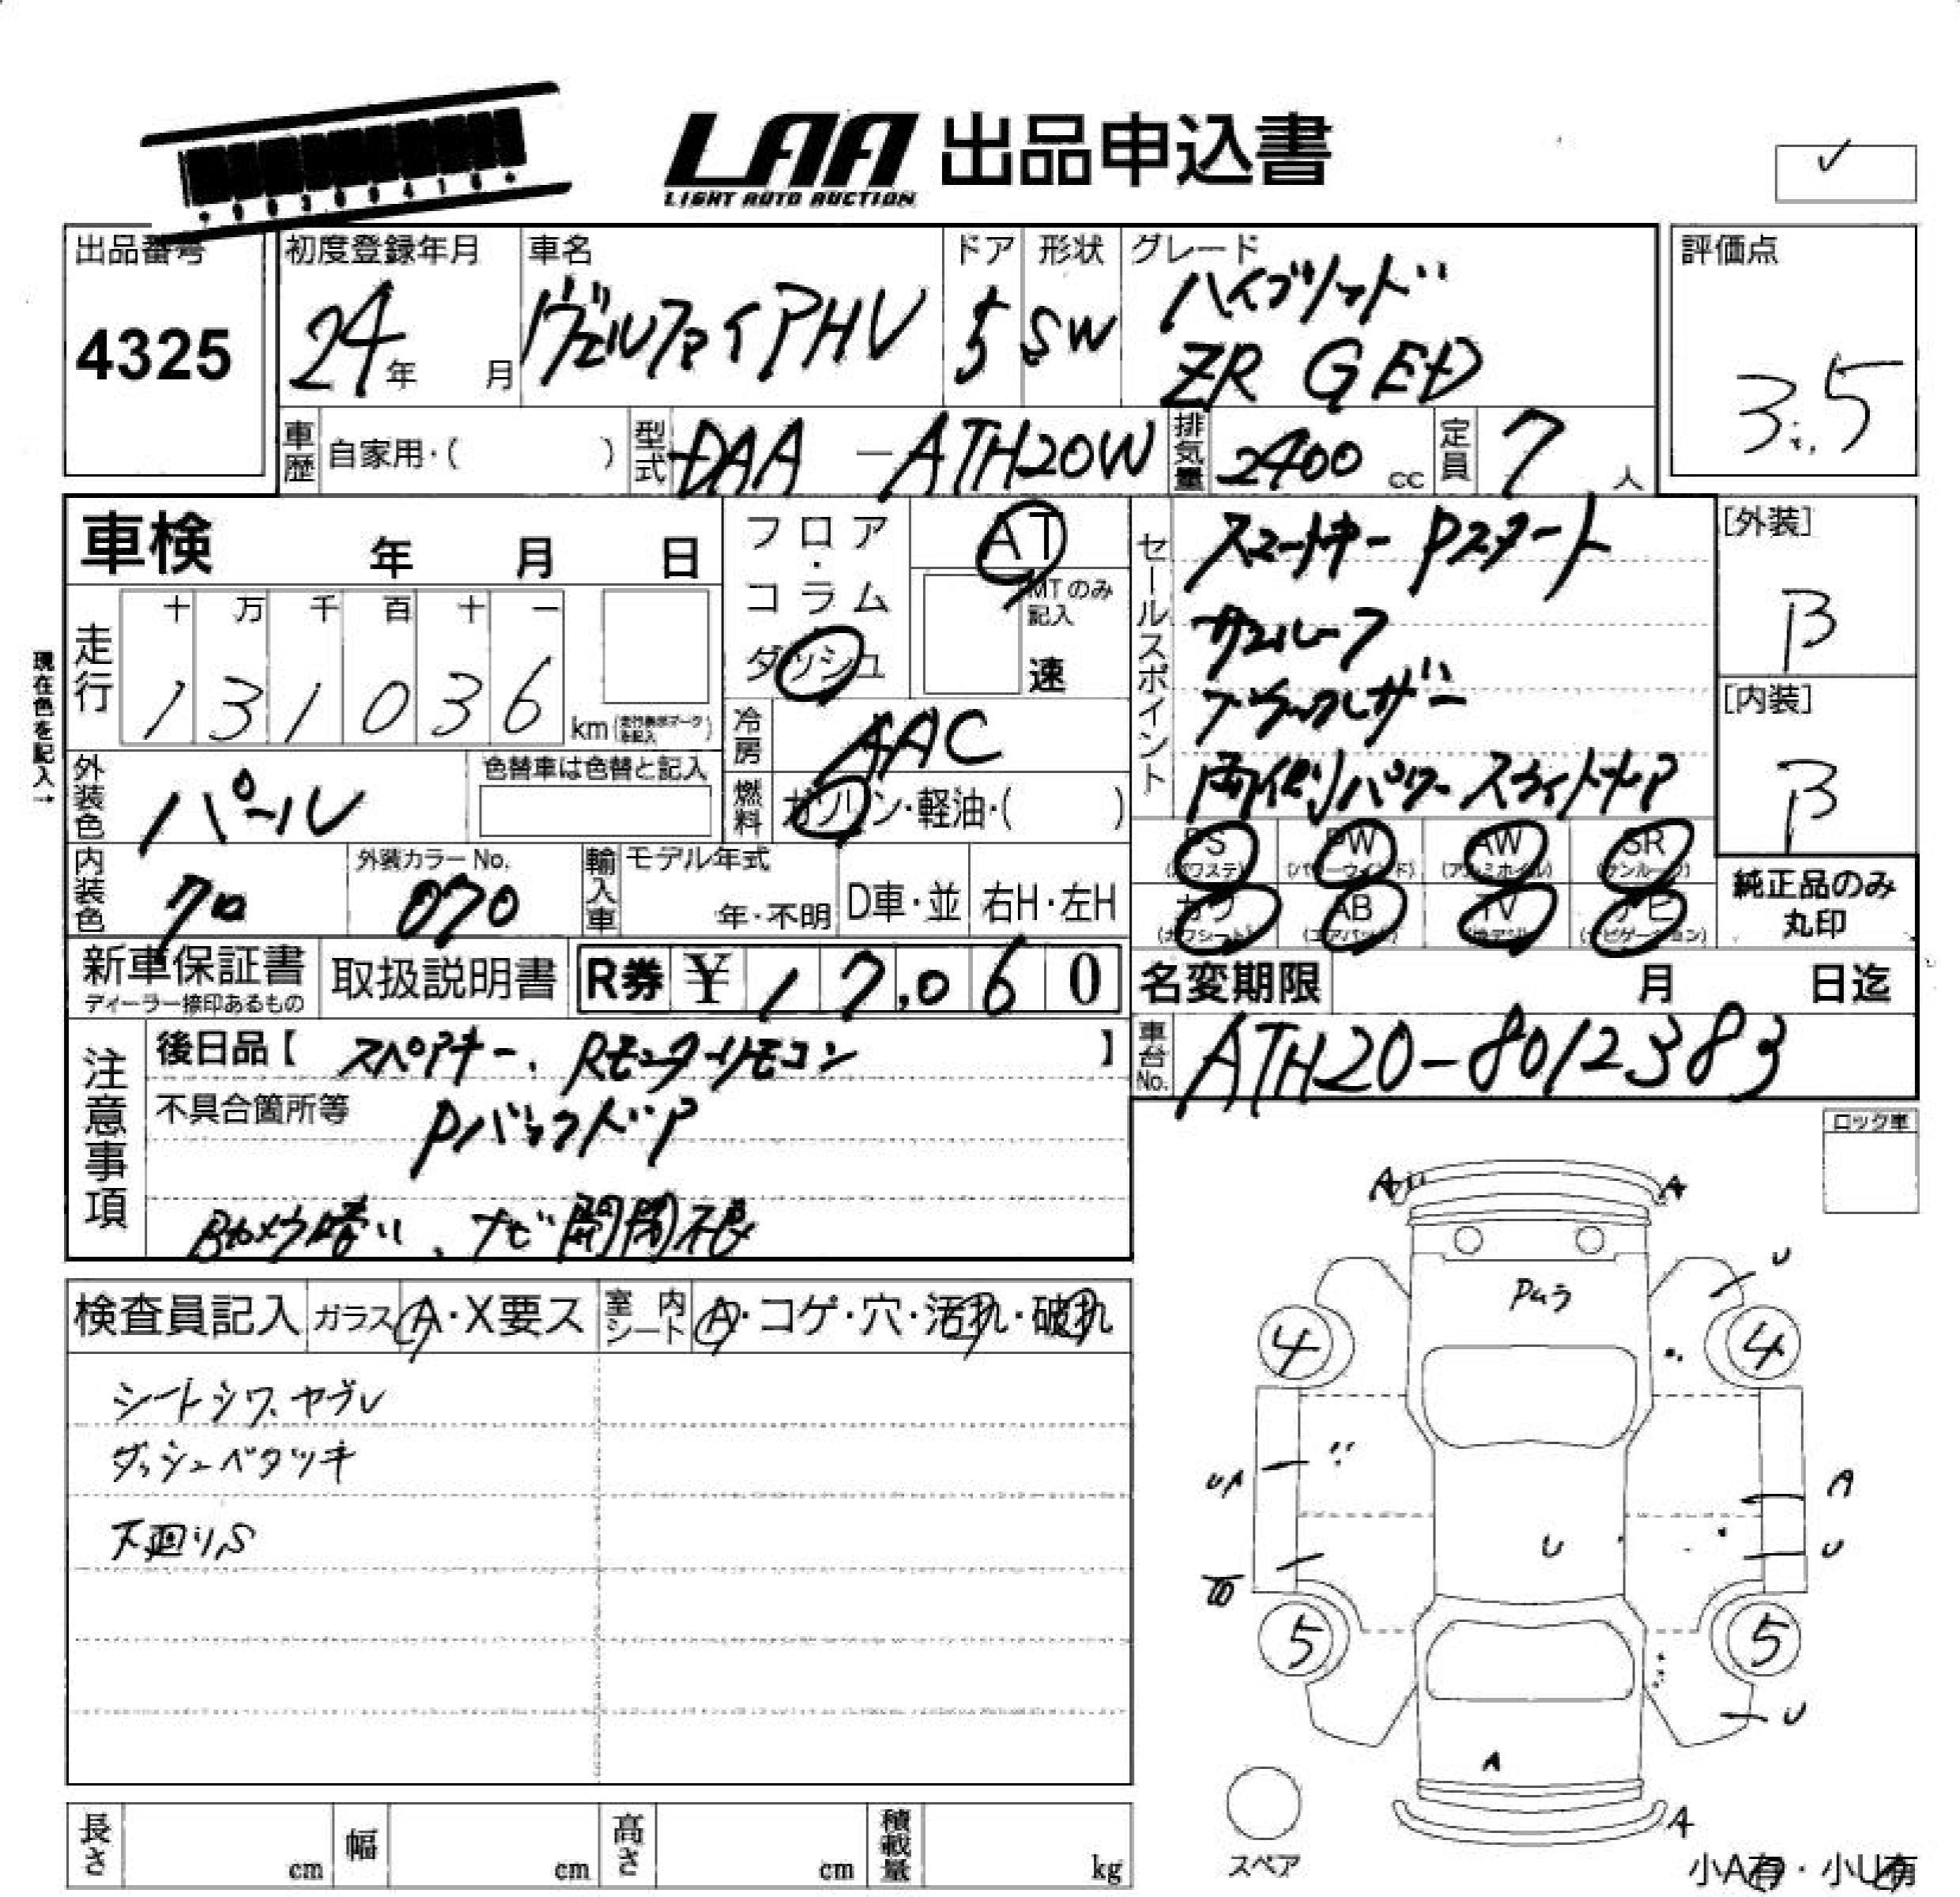 LAA 出品申込書
LIGHT AUTO AUCTION
✓
出品番号 初度登録年月 車名 ドア 形状 グレード 評価点
4325 24年 月 ヴェルファイアHV 5 SW ハイブリッド
ZR G ED 3.5
車歴 自家用・( ) 型式 DAA-ATH20W 排気量 2400cc 定員 7人
車検 年 月 日
フロア・コラム
ダッシュ
AT
MTのみ記入
速
現在色を記入→
走行 十 万 千 百 十 一
1 3 1 0 3 6 km
冷房 AAC
外装色 パール 色替車は色替と記入
燃料 ガソリン・軽油・( )
内装色 クロ 外装カラーNo. 070 輸入車 モデル年式 年・不明 D車・並 右H・左H
セールスポイント
スマートキー Pスタート
サンルーフ
ブラックレザー
両側パワースライドドア
[外装]
B
[内装]
B
PS (パワステ) PW (パワーウインド) AW (アルミホイル) SR (サンルーフ)
カワ (カワシート) AB (エアバック) TV (地デジ) ナビ (ナビゲーション)
純正品のみ
丸印
新車保証書 取扱説明書 R券 ¥ 17,060
ディーラー捺印あるもの
名変期限 月 日迄
車台No. ATH20-8012383
注意事項
後日品【 スペアキー、Rモニターリモコン 】
不具合箇所等 Pバックドア
Bカメラ暗い、ナビ開閉不良
ロック車
検査員記入 ガラス A・X要ス 室内シート A・コゲ・穴・汚れ・破れ
シートシワ、ヤブレ
ダッシュベタツキ
下廻りS
A A
U
Pムラ
4 4
UA A
U U
5 5
U
A
A
スペア
小A有・小U有
長さ cm 幅 cm 高さ cm 積載量 kg